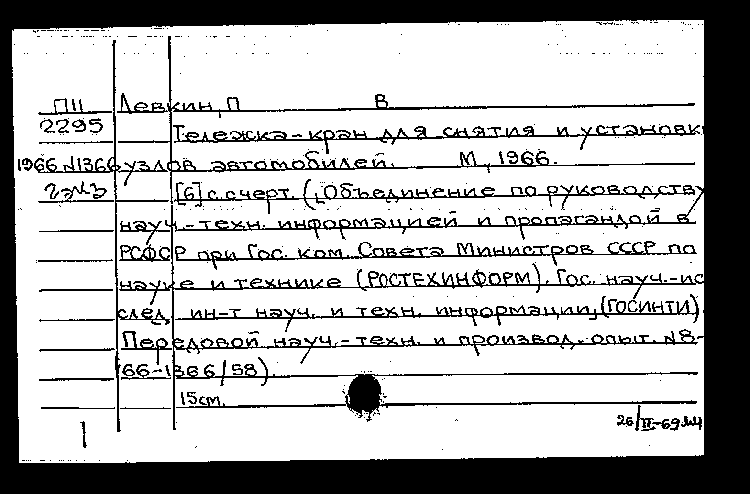 ПII Левкин, П В
2295 Тележка-кран для снятия и установки
1966 N1366 узлов автомобилей. М., 1966.
2 экз [6] с.счерт. (Объединение по руководству
науч.-техн. информацией и пропагандой в
РСФСР при Гос. ком. Совета Министров СССР по
науке и технике (РОСТЕХИНФОРМ). Гос. науч.-ис
след. ин-т науч. и техн. информации, (ГОСИНТИ).
Передовой науч.-техн. и производ. опыт. N8-
66-1366/58).
15см.
26/II-69